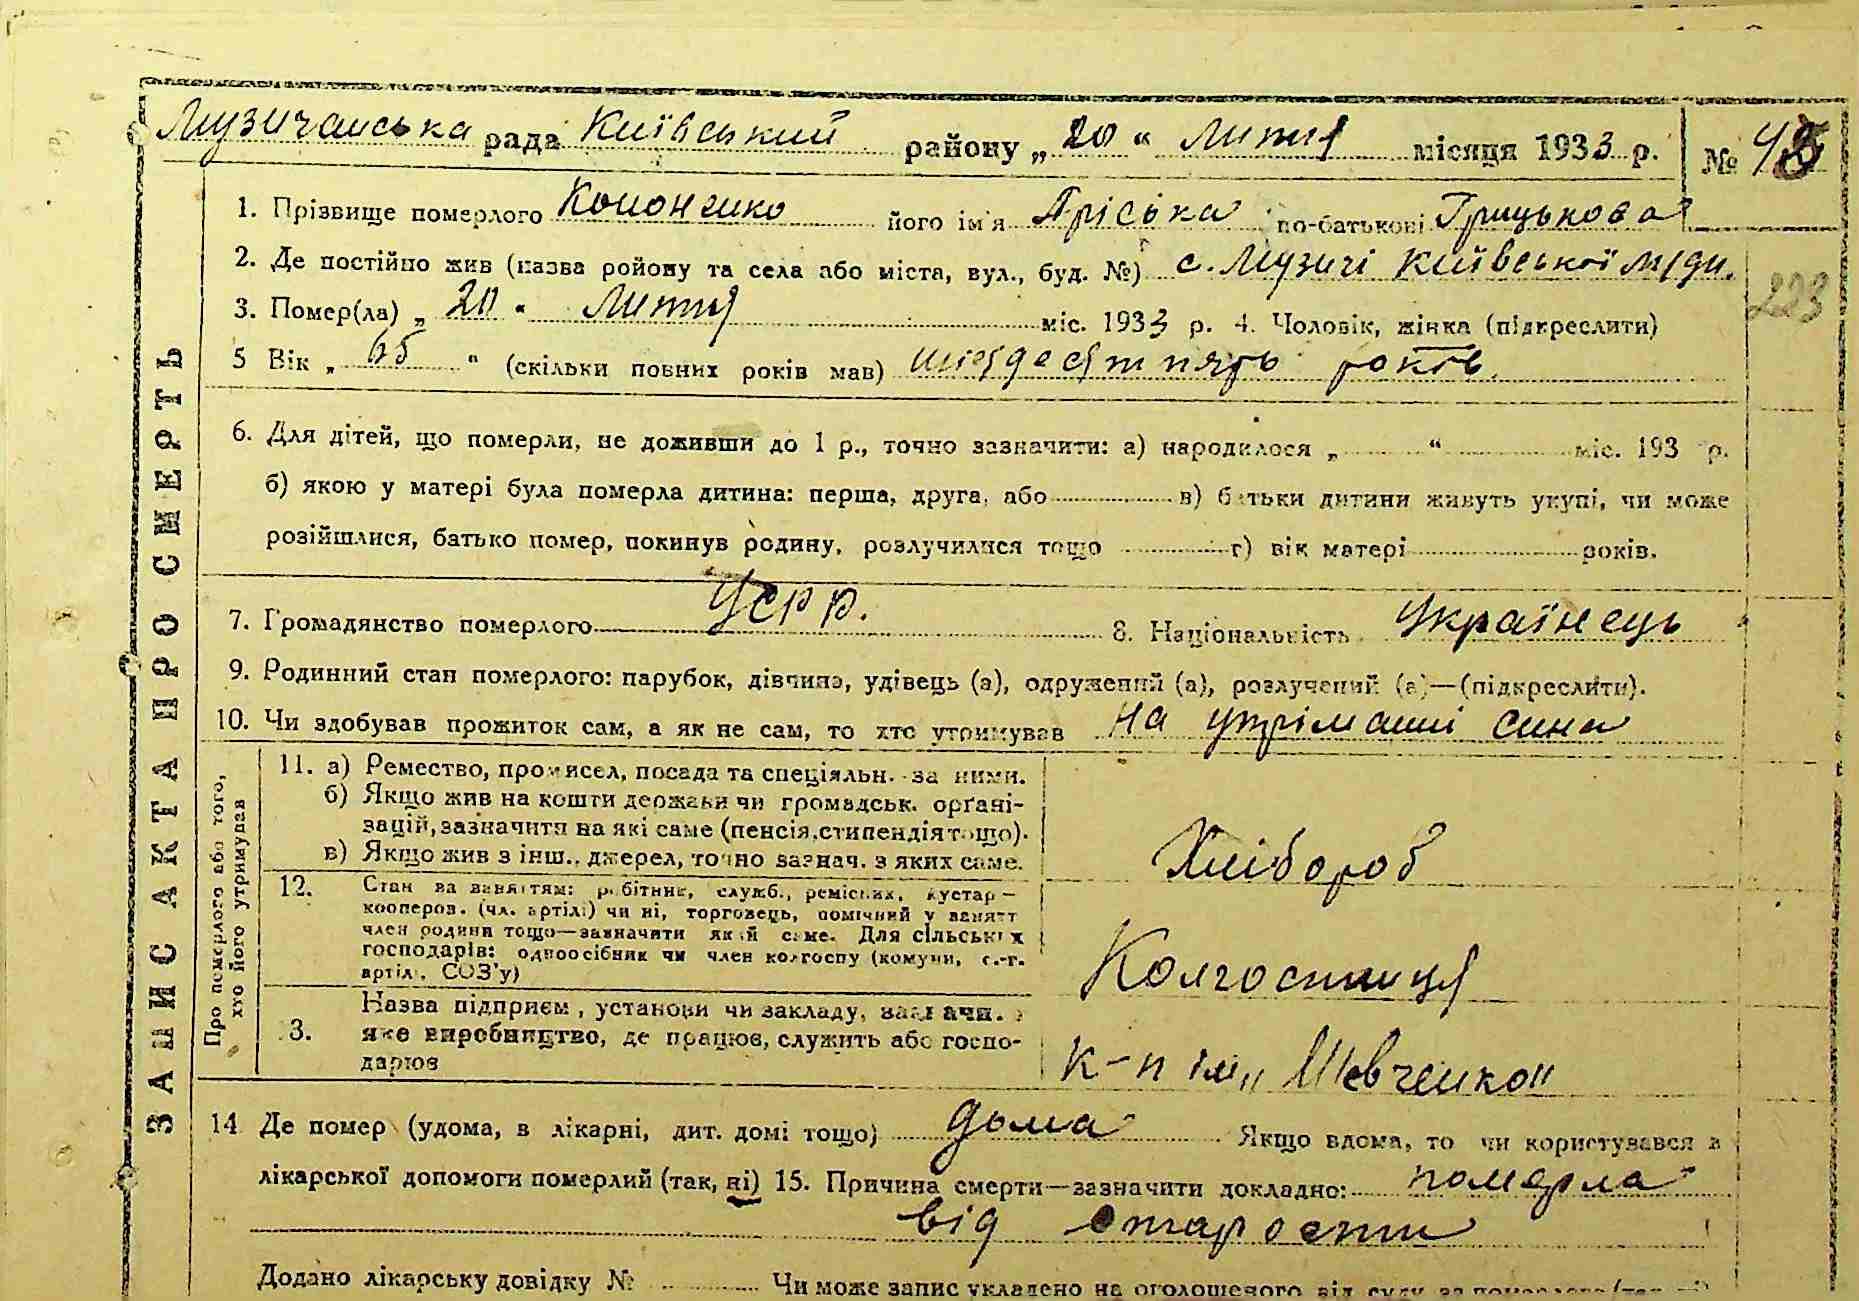 Музичанська рада Київський району „20“ Лютня місяця 1933 р. № 48
1. Прізвище померлого Кононенко його ім'я Пріська по-батькові Грицькова
2. Де постійно жив (назва ройону та села або міста, вул., буд. №) с. Музичі Київської
223
3. Помер(ла) „20“ Лютня міс. 1933 р. 4. Чоловік, жінка (підкреслити)
5 Вік „65“ (скільки повних років мав) шістдесят пять років
6. Для дітей, що померли, не доживши до 1 р., точно зазначити: а) народилося „ “ міс. 193 р.
б) якою у матері була померла дитина: перша, друга, або в) батьки дитини живуть укупі, чи може
розійшлися, батько помер, покинув родину, розлучилися тощо г) вік матері років.
7. Громадянство померлого УСРР. 8. Національність Українець
9. Родинний стан померлого: парубок, дівчина, удівець (а), одружений (а), розлучений (а)—(підкреслити).
10. Чи здобував прожиток сам, а як не сам, то хто утримував на утріманні сина
ЗАПИС АКТА ПРО СМЕРТЬ
Про померлого або того,
хто його утримував
11. а) Ремество, промисел, посада та спеціяльн. за ними.
б) Якщо жив на кошти держави чи громадськ. орґані-
зацій, зазначити на які саме (пенсія, стипендія тощо).
в) Якщо жив з інш. джерел, точно зазнач. з яких саме.
Хлібороб
12. Стан за заняттям: робітник, служб., реміснык, кустар —
кооперов. (чл. артілі) чи ні, торговець, помічний у занятт
член родини тощо—зазначити який саме. Для сільських
господарів: одноосібник чи член колгоспу (комуни, с.-г.
артілі, СОЗ'у)
Колгоспниця
Назва підприєм, установи чи закладу, зазначи.
13. яке виробництво, де працює, служить або госпо-
дарює
к-п ім „Шевченко“
14 Де помер (удома, в лікарні, дит. домі тощо) дома Якщо вдома, то чи користувався з
лікарської допомоги померлий (так, ні) 15. Причина смерти—зазначити докладно: померла
від старости
Додано лікарську довідку № Чи може запис укладено на оголошеного від суду за померлого